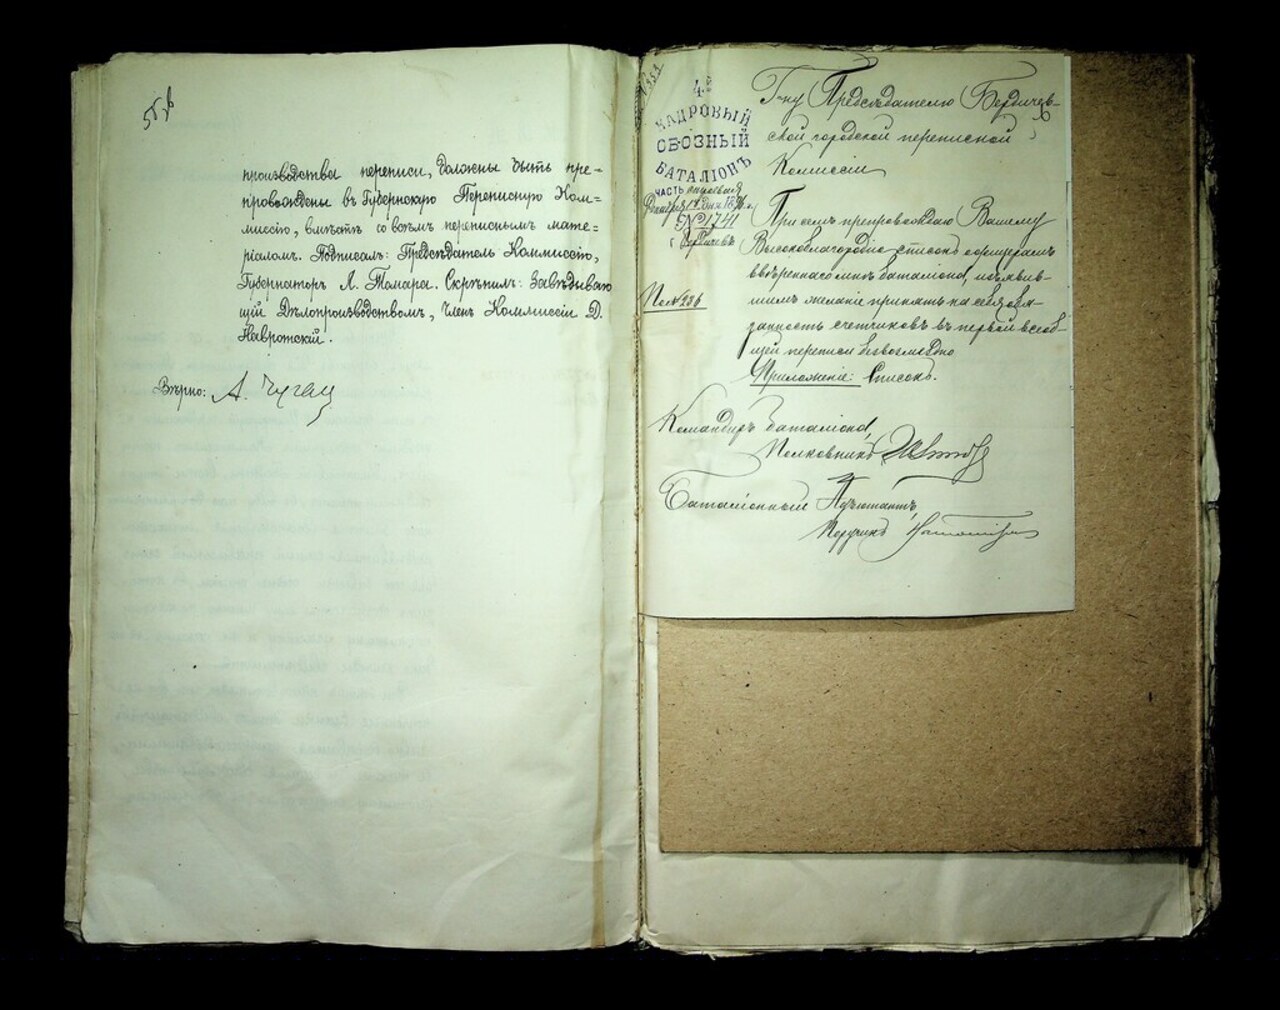 производства переписи, должны быть пре=
провождены въ Губернскую Переписную Ком=
миссію, вмѣстѣ со всѣмъ переписнымъ мате=
ріаломъ. Подписалъ: Предсѣдатель Коммиссіи,
Губернаторъ Л. Томара. Скрѣпилъ: Завѣдываю
щій Дѣлопроизводствомъ, Членъ Коммиссіи Д.
Навротскій.
Вѣрно: А.
4й
КАДРОВЫЙ
ОБОЗНЫЙ
БАТАЛІОНЪ
ЧАСТЬ строевая
Декабря
№ 1741
г. Бердичевъ
По № 236
Г-ну Предсѣдателю Бердичев-
ской городской переписной
Коммиссіи
При семъ препровождаю Вашему
Высокоблагородію списокъ офицерамъ
ввѣреннаго мнѣ баталіона, изъявив-
шимъ желаніе принять на себя обя-
занность счетчиковъ въ первой всеоб-
щей переписи безвозмездно
Приложеніе: Списокъ.
Командиръ баталіона,
Полковникъ
Баталіонный Адъютантъ,
Поручикъ